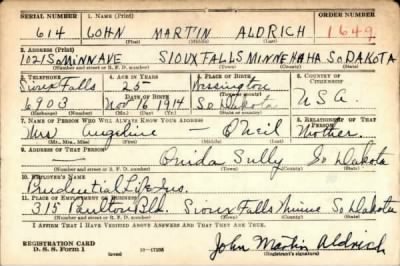 SERIAL NUMBER 1. NAME (Print) ORDER NUMBER
614 JOHN MARTIN ALDRICH 1649
(First) (Middle) (Last)
2. ADDRESS (Print)
1021 SO MINN AVE SIOUX FALLS MINNEHAHA SO. DAKOTA
(Number and street or R. F. D. number) (Town) (County) (State)
3. TELEPHONE 4. AGE IN YEARS 5. PLACE OF BIRTH 6. COUNTRY OF CITIZENSHIP
Sioux Falls 25 Wessington
DATE OF BIRTH (Town or county) U.S.A.
6903 Nov 16 1914 So Dakota
(Exchange) (Number) (Mo.) (Day) (Yr.) (State or country)
7. NAME OF PERSON WHO WILL ALWAYS KNOW YOUR ADDRESS 8. RELATIONSHIP OF THAT PERSON
Mrs Angeline — O'Neil Mother
(Mr., Mrs., Miss) (First) (Middle) (Last)
9. ADDRESS OF THAT PERSON
— Onida Sully So Dakota
(Number and street or R. F. D. number) (Town) (County) (State)
10. EMPLOYER'S NAME
Prudential Life Ins.
11. PLACE OF EMPLOYMENT OR BUSINESS
315 Paulton Bld. Sioux Falls Minne So Dakota
(Number and street or R. F. D. number) (Town) (County) (State)
I AFFIRM THAT I HAVE VERIFIED ABOVE ANSWERS AND THAT THEY ARE TRUE.
REGISTRATION CARD
D. S. S. Form 1 John Martin Aldrich
(Registrant's signature)